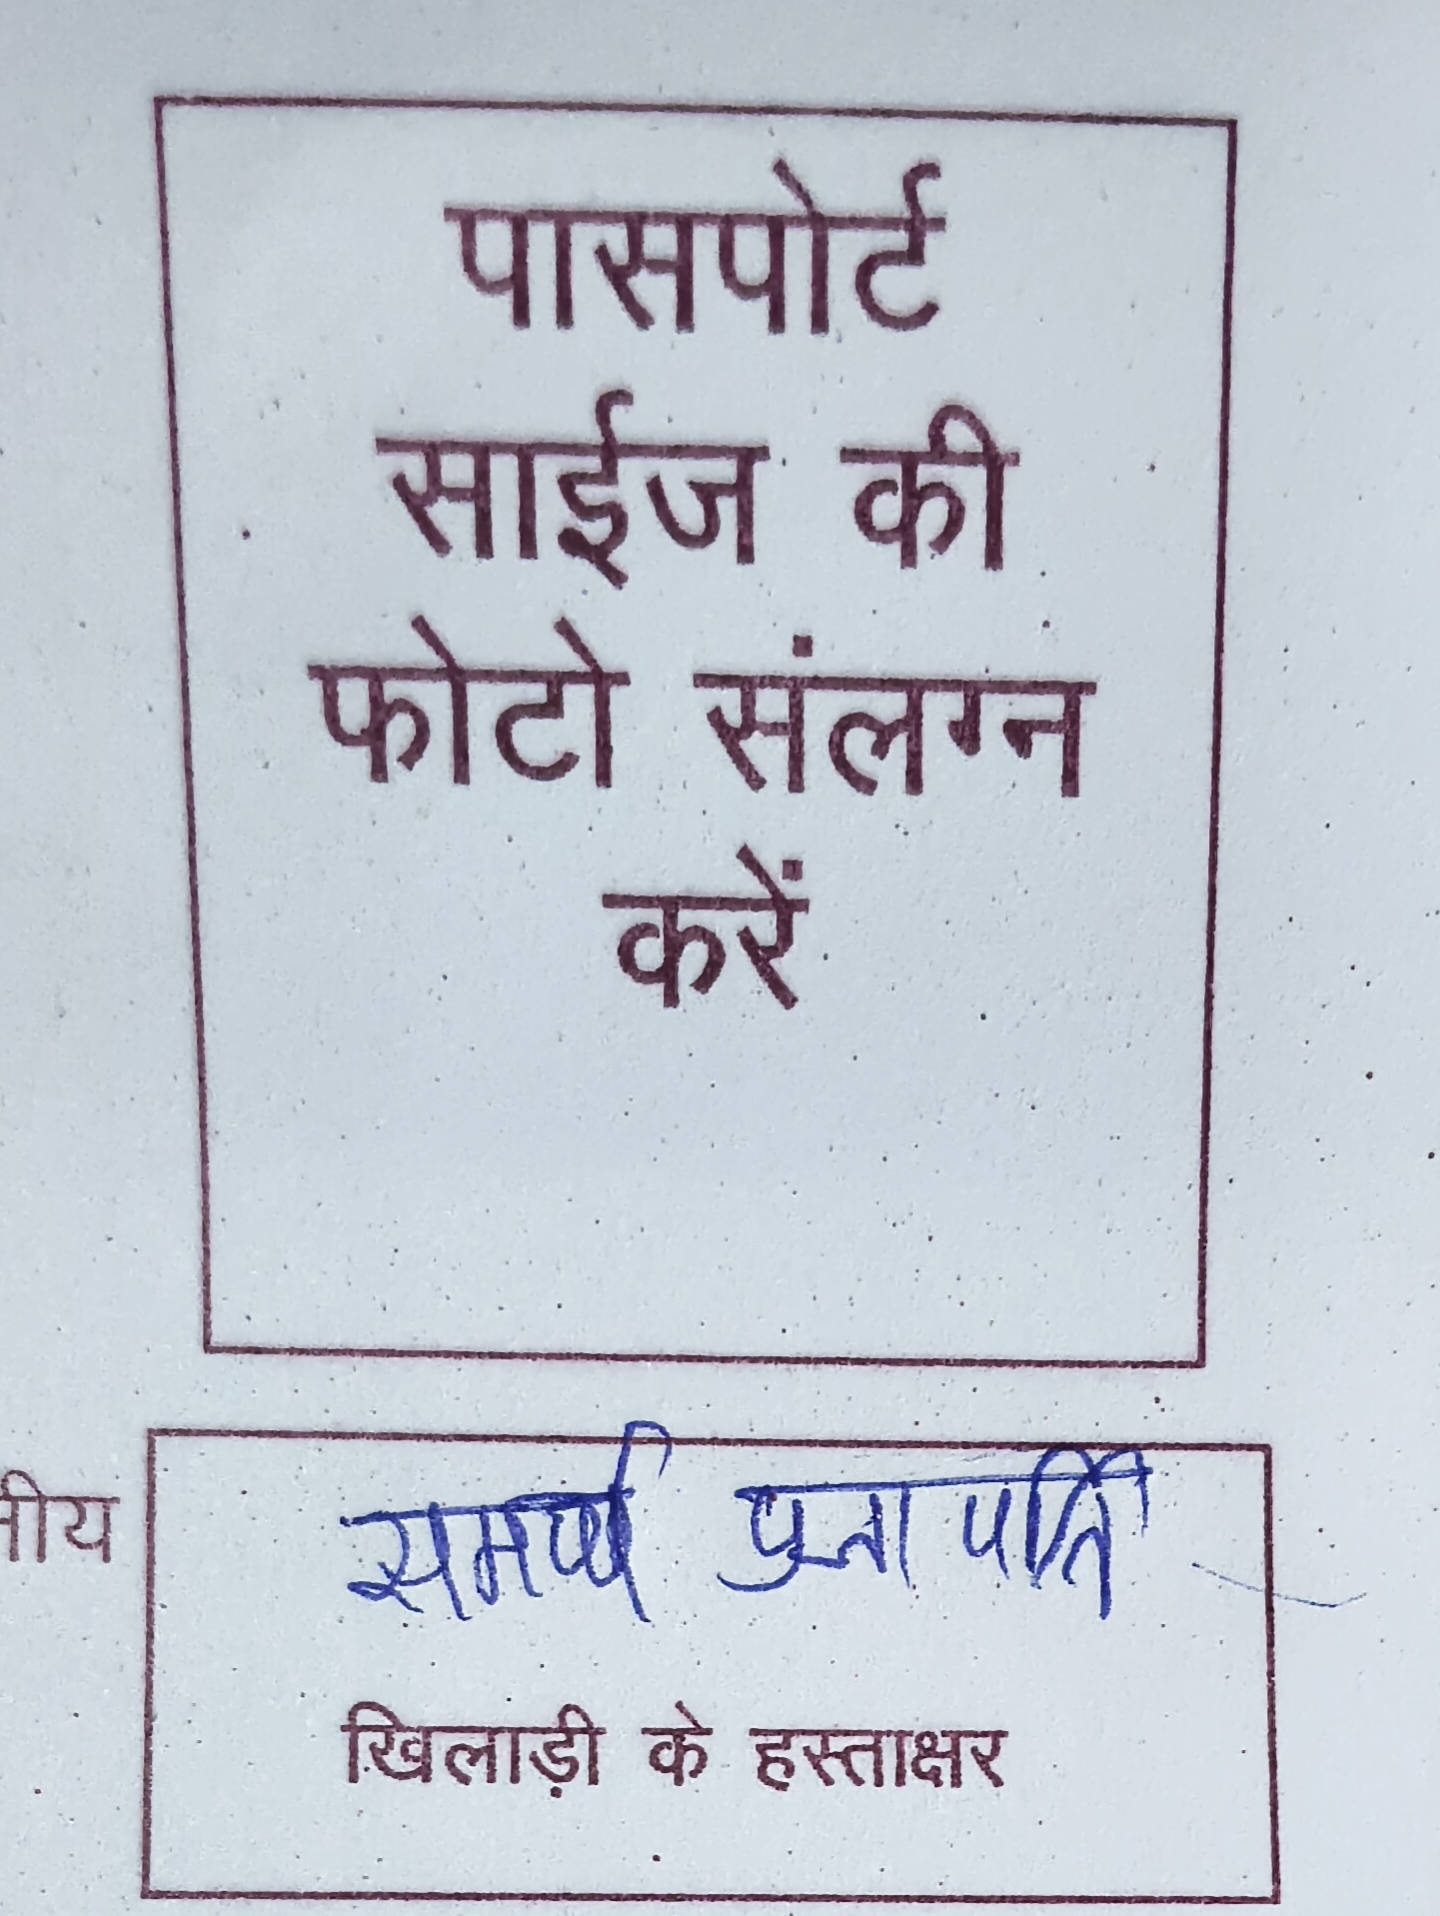 पासपोर्ट
साईज की
फोटो संलग्न
करें
समर्थ प्रजापति
खिलाड़ी के हस्ताक्षर